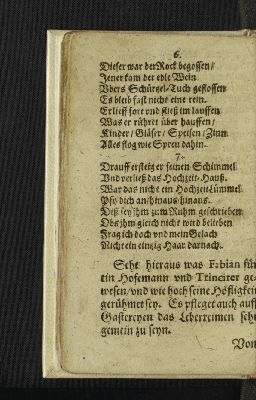 6.
Dieser war der Rock begossen/
Jener kam der edle Wein
Vbers Schürtzel-Tuch geflossen
Es bleib fast nichts eine rein.
Er lieff fort und stieß im lauffen
Was er rühret über hauffen/
Kinder/ Gläser/ Speisen/ Zinn
Alles flog wie Spreu dahin.
7.
Drauff ersteig er seinen Schimmel
Vnd verließ das Hochzeit-Hauß.
War das nicht ein Hochzeit Lümmel
Pfy dich an/hinaus/hinaus.
Diß sey ihm zum Ruhm geschrieben
Obs ihm gleich nicht wird belieben
Frag ich doch und mein
Nicht ein eintzig Haar darnach.
Seht hieraus was Fabian für
ein Hofemann vnd Trincirer ge-
wesen/ und wie hoch seine Höfligkeit
gerühmet sey. Es pfleget auch auff
Gastereyen das Leberreimen sehr
gemein zu seyn.
Von